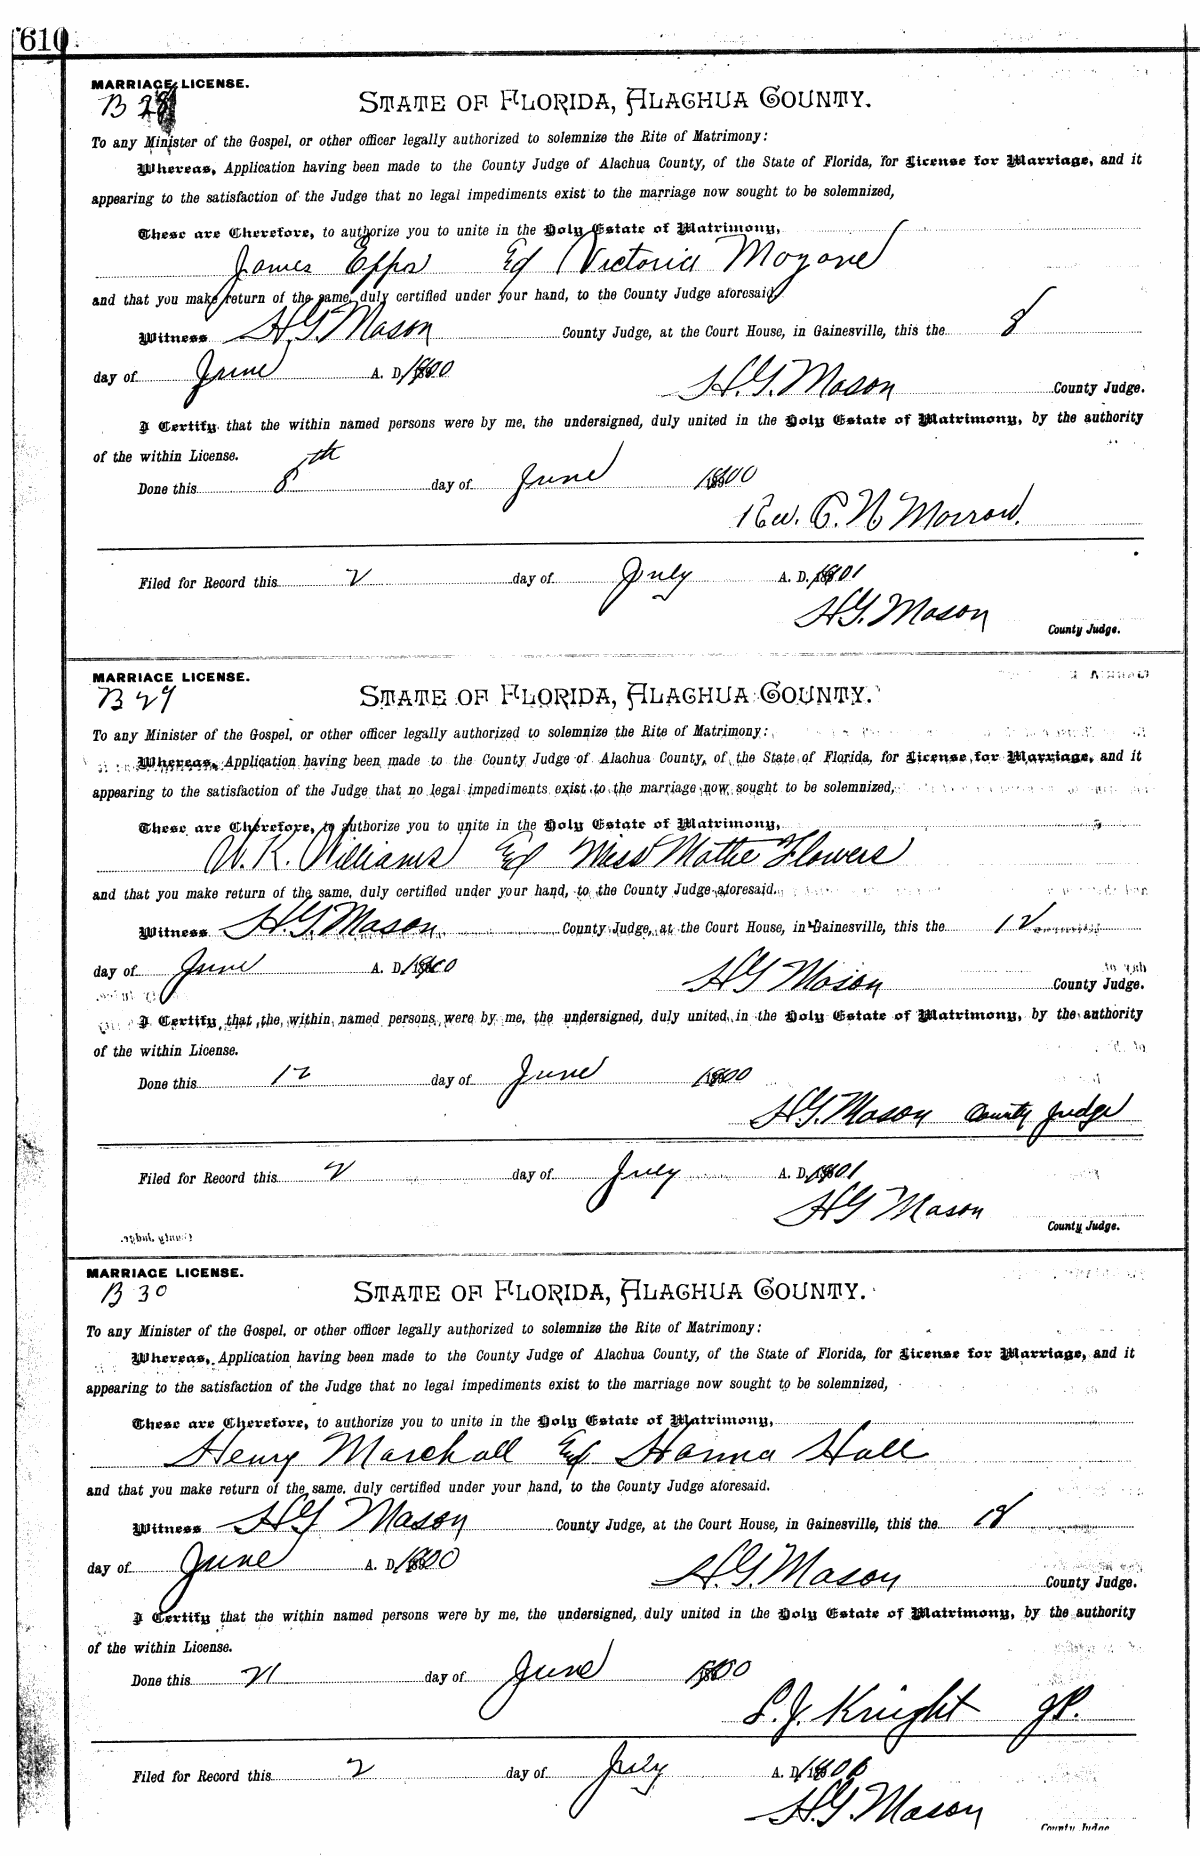 610
MARRIAGE LICENSE.
B 28
STATE OF FLORIDA, ALACHUA COUNTY.
To any Minister of the Gospel, or other officer legally authorized to solemnize the Rite of Matrimony:
Whereas, Application having been made to the County Judge of Alachua County, of the State of Florida, for License for Marriage, and it
appearing to the satisfaction of the Judge that no legal impediments exist to the marriage now sought to be solemnized,
These are Therefore, to authorize you to unite in the Holy Estate of Matrimony,
James Epps & Victoria
and that you make return of the same, duly certified under your hand, to the County Judge aforesaid.
Witness H.G. Mason County Judge, at the Court House, in Gainesville, this the 8
day of June A. D. 1900 H.G. Mason County Judge.
I Certify that the within named persons were by me, the undersigned, duly united in the Holy Estate of Matrimony, by the authority
of the within License.
Done this 8th day of June 1900
Rev. C. N Morrow.
Filed for Record this 2 day of July A. D. 1901
H.G. Mason
County Judge.
MARRIAGE LICENSE.
B 29
STATE OF FLORIDA, ALACHUA COUNTY.
To any Minister of the Gospel, or other officer legally authorized to solemnize the Rite of Matrimony:
Whereas, Application having been made to the County Judge of Alachua County, of the State of Florida, for License for Marriage, and it
appearing to the satisfaction of the Judge that no legal impediments exist to the marriage now sought to be solemnized,
These are Therefore, to authorize you to unite in the Holy Estate of Matrimony,
W. K. Williams & Miss Mattie Flowers
and that you make return of the same, duly certified under your hand, to the County Judge aforesaid.
Witness H.G. Mason County Judge, at the Court House, in Gainesville, this the 12
day of June A. D. 1900 H G Mason County Judge.
I Certify that the within named persons were by me, the undersigned, duly united in the Holy Estate of Matrimony, by the authority
of the within License.
Done this 12 day of June 1900
H.G. Mason County Judge
Filed for Record this 2 day of July A. D. 1901
H G Mason
County Judge.
MARRIAGE LICENSE.
B 30
STATE OF FLORIDA, ALACHUA COUNTY.
To any Minister of the Gospel, or other officer legally authorized to solemnize the Rite of Matrimony:
Whereas, Application having been made to the County Judge of Alachua County, of the State of Florida, for License for Marriage, and it
appearing to the satisfaction of the Judge that no legal impediments exist to the marriage now sought to be solemnized,
These are Therefore, to authorize you to unite in the Holy Estate of Matrimony,
Henry Marchall & Hanna Hall
and that you make return of the same, duly certified under your hand, to the County Judge aforesaid.
Witness H G Mason County Judge, at the Court House, in Gainesville, this the 18
day of June A. D. 1900 H.G. Mason County Judge.
I Certify that the within named persons were by me, the undersigned, duly united in the Holy Estate of Matrimony, by the authority
of the within License.
Done this 21 day of June 1900
L. J. Knight J.P.
Filed for Record this 2 day of July A. D.
H.G. Mason
County Judge